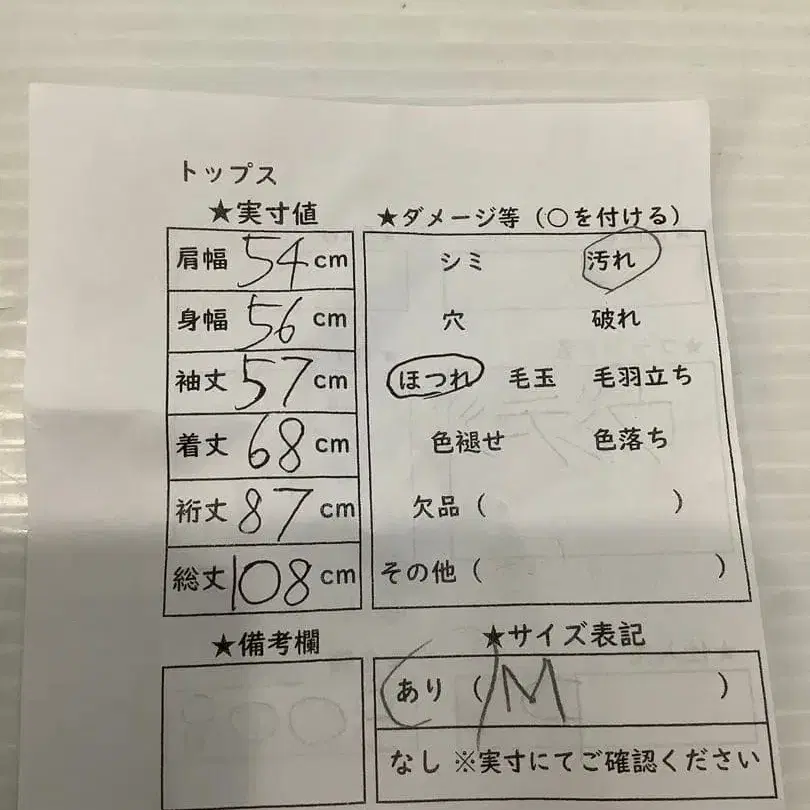 トップス
★実寸値
肩幅 54 cm
身幅 56 cm
袖丈 57 cm
着丈 68 cm
裄丈 87 cm
総丈 108 cm
★ダメージ等（○を付ける）
シミ 汚れ
穴 破れ
ほつれ 毛玉 毛羽立ち
色褪せ 色落ち
欠品（ ）
その他（ ）
★備考欄
★サイズ表記
あり（M ）
なし ※実寸にてご確認ください